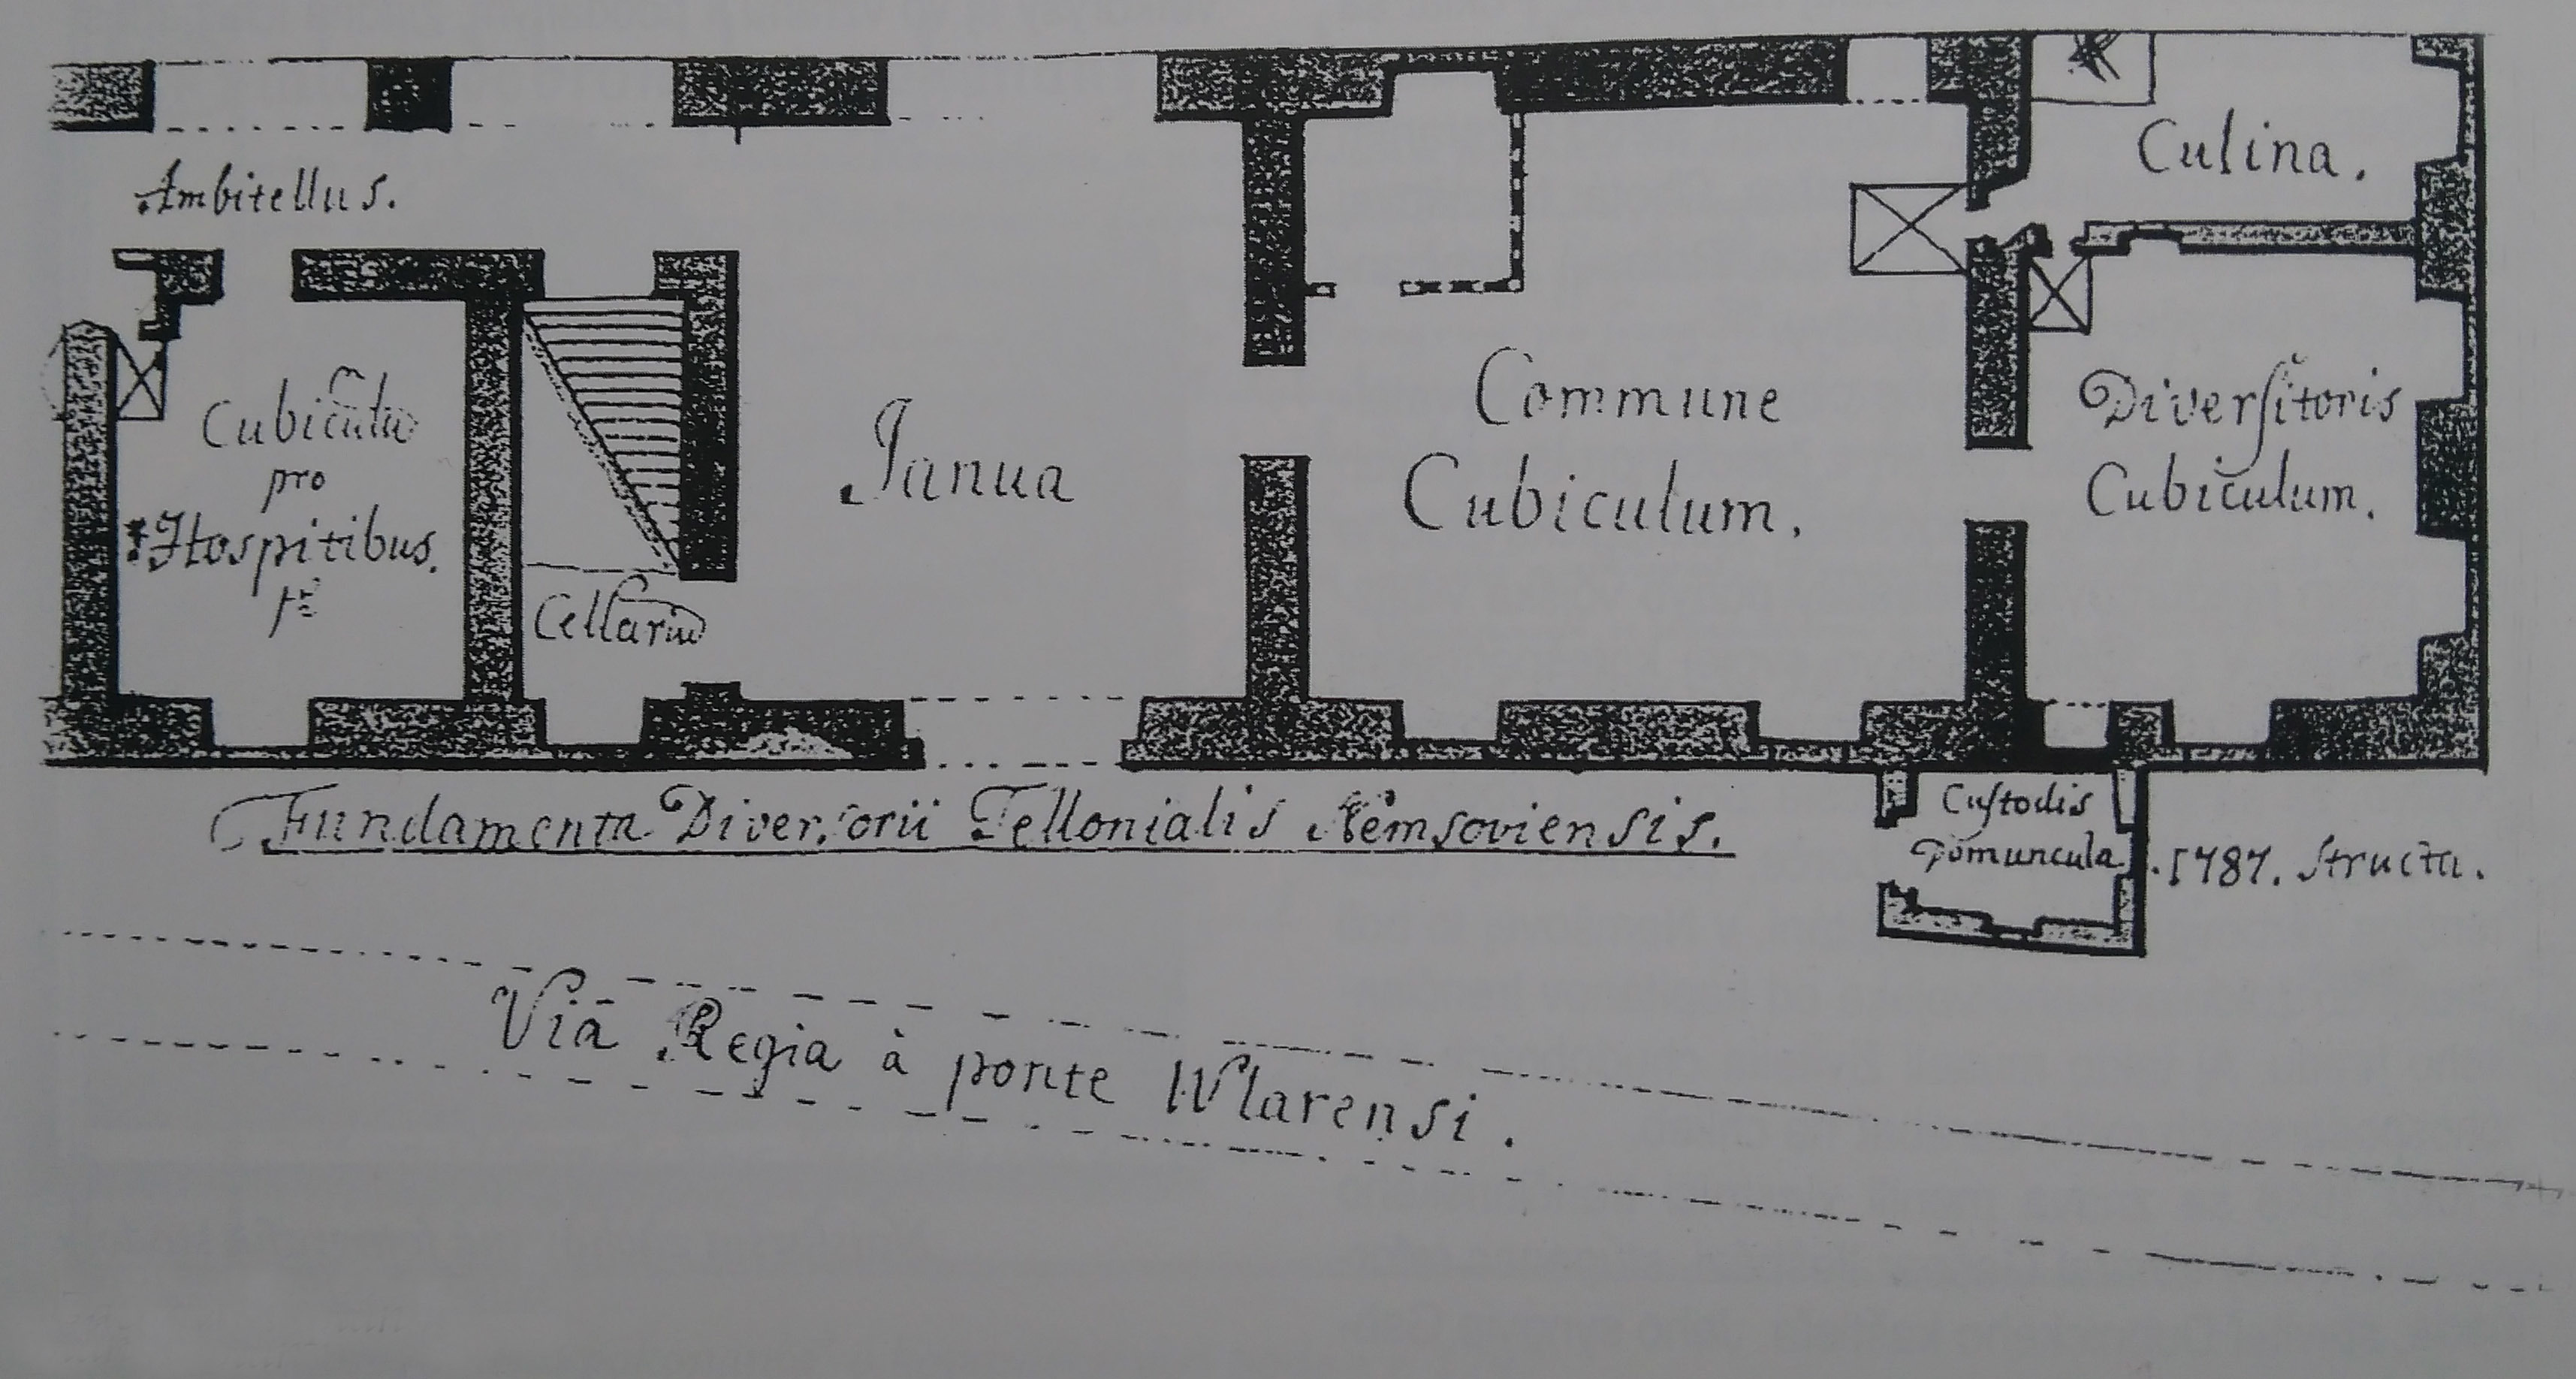 Ambitellus.
Culina.
Cubiculū
pro
Hospitibus.
Cellariū
Janua
Commune
Cubiculum.
Diverſitoris
Cubiculum.
Fundamenta Diversorii Tellonialis Nemsoviensis.
Cuſtodis
Domuncula. 1787. structa.
Via Regia à ponte Wlarensi.